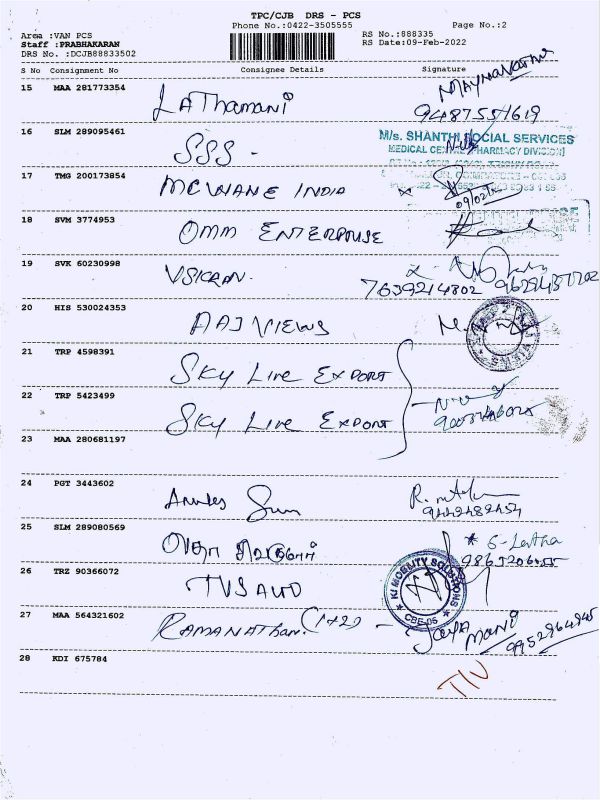 TPC/CJB DRS - PCS
Phone No.:0422-3505555 Page No.:2
Area :VAN PCS RS No.:888335
Staff :PRABHAKARAN RS Date:09-Feb-2022
DRS No. :DCJB88833502
S No Consignment No Consignee Details Signature
15 MAA 281773354 LAThamani
16 SLM 289095461 SSS -
M/s. SHANTHI SOCIAL SERVICES
MEDICAL CENTRE (PHARMACY DIVISION)
17 TMG 200173854 MCWANE INDIA
18 SVM 3774953 OMM ENTERPRISE
19 SVK 60230998 VSICRAN.
7639214802
20 HIS 530024353 AAJ VIEWS
21 TRP 4598391 SKy Live EXPORT
22 TRP 5423499 SKy Live EXPORT
23 MAA 280681197
24 PGT 3443602
25 SLM 289080569 * S-Latha
26 TRZ 90366072 TVS AUTO
KI MOBILITY SOLUTIONS
CBE-06
27 MAA 564321602 RAMANAThan. (1+2) - JayA mani
9952964945
28 KDI 675784